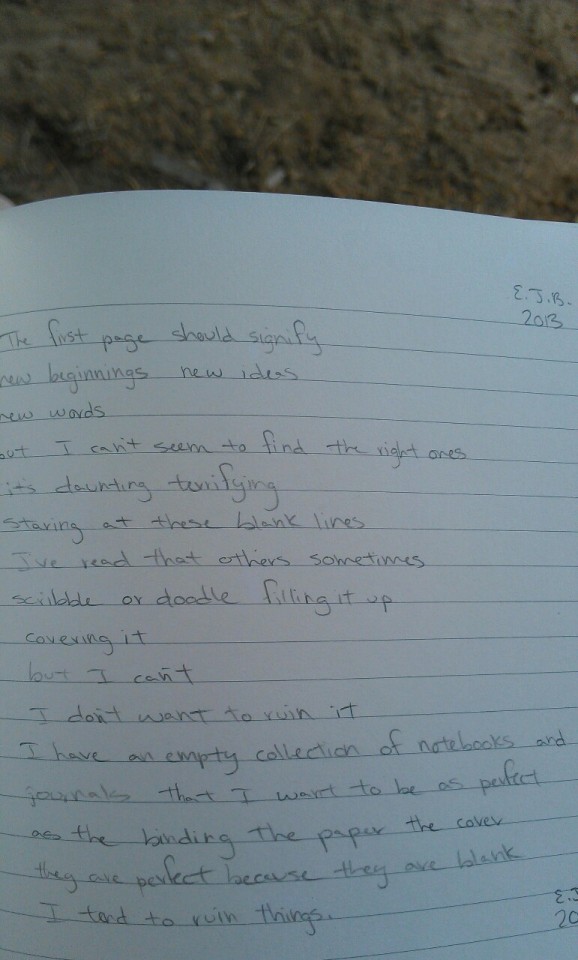 E.J.B.
2013
The first page should signify
new beginnings new ideas
new words
but I can't seem to find the right ones
it's daunting terrifying
staring at these blank lines
I've read that others sometimes
scribble or doodle filling it up
covering it
but I can't
I don't want to ruin it
I have an empty collection of notebooks and
journals that I want to be as perfect
as the binding the paper the cover
they are perfect because they are blank
I tend to ruin things.
E.J
20